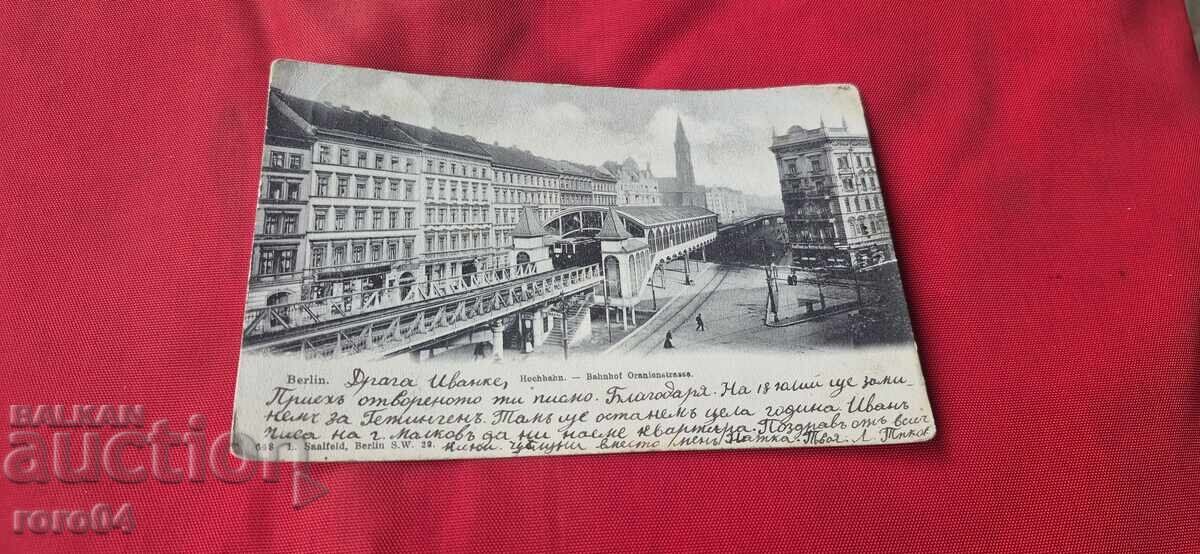 Berlin. Драга Иванке, Hochbahn. — Bahnhof Oranienstrasse.
Приехъ отвореното ти писмо. Благодаря. На 18 юлий ще зами-
немъ за Гетингенъ. Тамъ ще останемъ цела година. Иванъ
писа на г. Малковъ да ни наеме квартира. Поздравъ отъ всич-
L. Saalfeld, Berlin S.W. 29. целуни вместо менъ Твоя Л.
BALKAN
auction
roro04